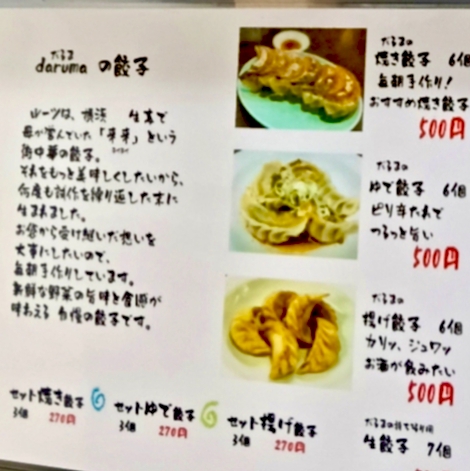 だるま
daruma の餃子
ルーツは、横浜 生麦で
母が営んでいた「芽芽」という
街中華の餃子。
それをもっと美味しくしたいから、
何度も試作を繰り返した末に
生まれました。
お客から受け継いだ想いを
大事にしたいので、
毎朝手作りしています。
新鮮な野菜の旨味と食感が
味わえる 自慢の餃子です。
だるまの
焼き餃子 6個
毎朝手作り!
おすすめ焼き餃子
500円
だるまの
ゆで餃子 6個
ピリ辛たれで
つるっと旨い
500円
だるまの
揚げ餃子 6個
カリッ、ジュワッ
お酒が飲みたい
500円
セット焼き餃子
3個 270円
セットゆで餃子
3個 270円
セット揚げ餃子
3個 270円
だるまの
生餃子 7個